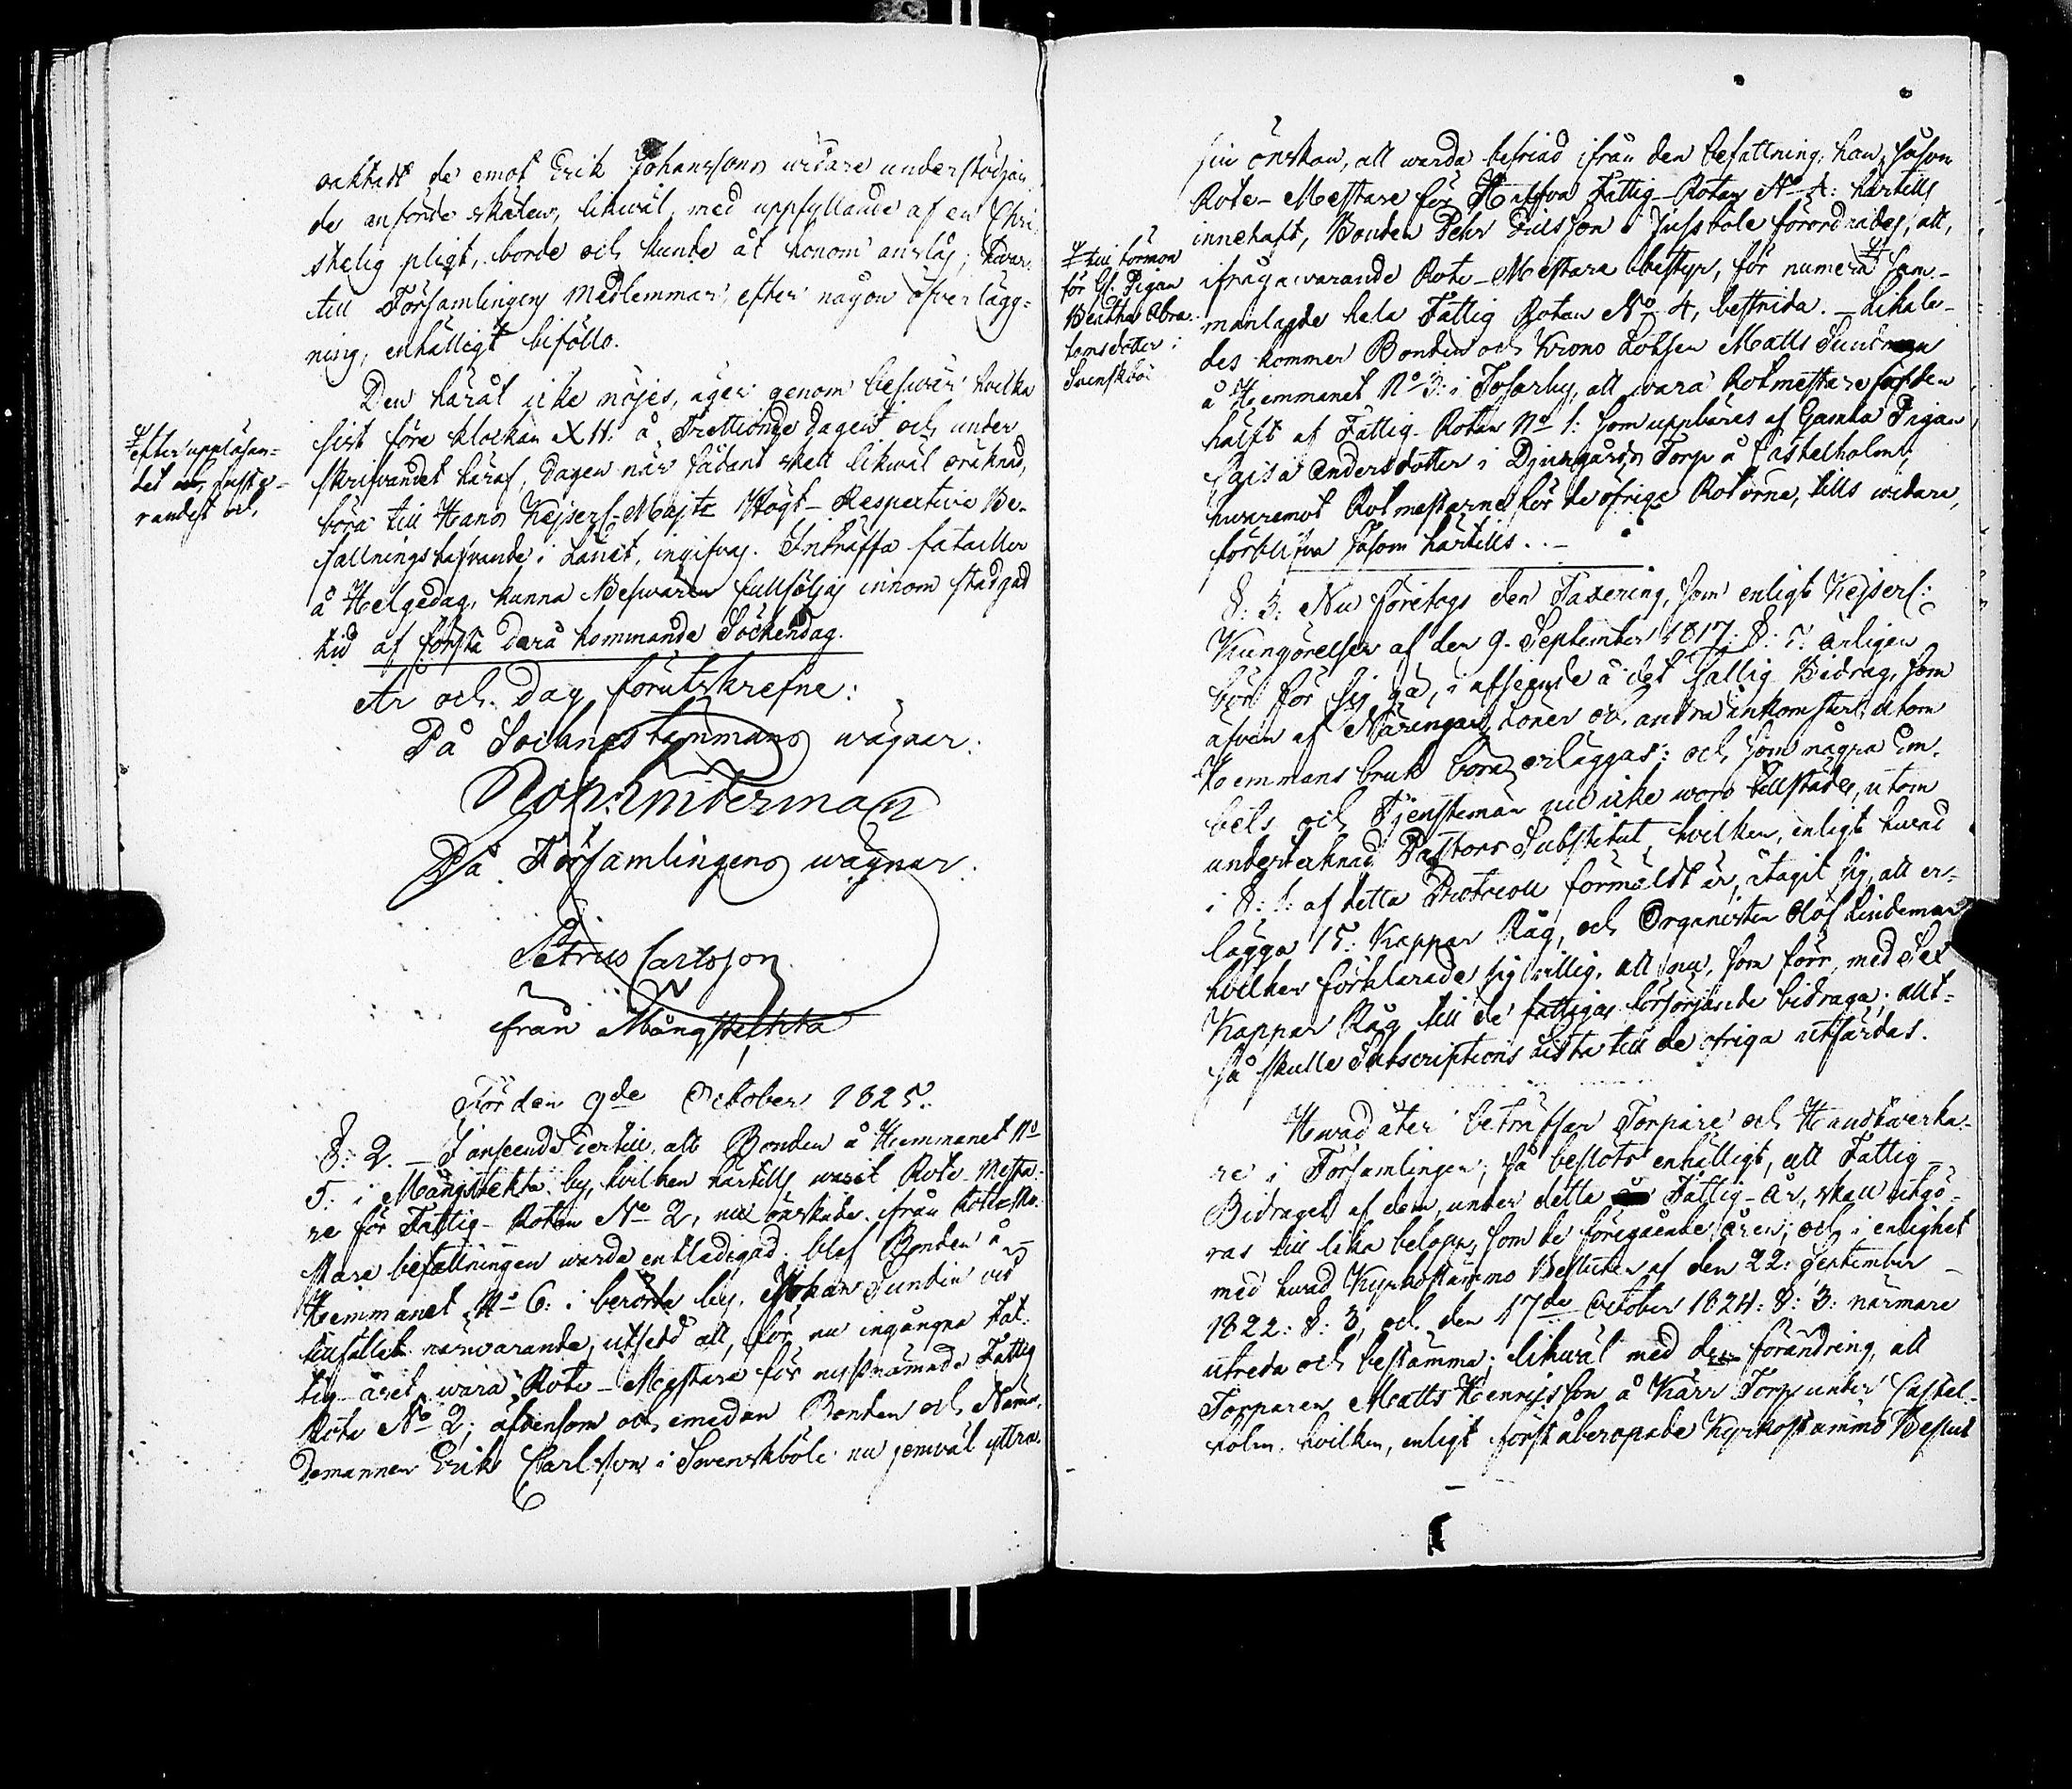 oaktadt de emot Erik Johanssons widare understödjan
de anförde skälen, likwäl, med uppfyllande af en Chri-
stelig pligt, borde och kunde åt honom anslås; hwar-
till Församlingens Medlemmar, efter någon öfverlägg-
ning, enhälligt biföllo.
Den häråt icke nöjes, äger genom beswär hvilka
sist före klockan XII. å Trettionde dagen ⌗ och under
skrifvandet häraf, dagen när sådant sked likwäl oräknad,
böra till Hans Kejserl. Majts Högt- Respective Be-
fallningshafvande i Länet, ingifvas. Inträffa fatalier
å Helgedag, kunna Beswären fullföljas innom stadgad
tid af första derå kommande Söckendag.
⌗ efter uppläsan-
det och juste-
randet och
År och Dag förutskrefne:
På Sochnestämmans wägnar:
Joh: Emterman
På Församlingens wägnar:
Petrus Carlsson
från Mångstekta
För den 9de October 1825.
§: 2. _ I anseende dertill, att Bonden å Hemmanet No
5: i Mångstekta by, hvilken härtills warit Rote-Mesta-
re för Fattig-Rotan No 2, nu önskade ifrån Rote-Me-
stare befattningen warda entledigad, blef Bonden å
Hemmanet No 6: i berörda by, Johan Sundin vid
tillfället närwarande, utsedd att, för nu ingångna Fat-
tig-året, wara Rote-Mestare för nyssnämnde Fattig
Rote No 2; äfvensom och emedan Bonden och Nämn-
demannen Erik Carlsson i Svenskböle nu jemwäl yttra-
sin önskan, att warda befriad ifrån den befattning, han, såsom
Rote-Mestare för Halfva Fattig-Rotan No 4: härtills
innehaft, Bonden Pehr Ericsson i Jussböle förordnades, att,
ifrågawarande Rote-Mestare bestyr, för numera ⌗ Sam-
manlagde hela Fattig Rotan No 4, bestrida. _ Likale-
des kommer Bonden och Krono Lotsen Matts Sundman
å Hemmanet No 3: i Tosarby, att wara Rotmestare för den
hälft af Fattig-Rotan No 1: som uppbäres af Gamla Pigan
Caisa Andersdotter i Djurgårds Torp å Castelholm;
hwaremot Rotmestarne för de öfrige Rotorne, tills widare,
förblifva såsom härtills. _
⌗ till förmon
för bl. Pigan
Beatha Abra-
hamsdotter i
Svenskböle
§: 3: Nu företogs den Taxering, som enligt Kejserl:
Kungörelsen af den 9. September 1817: §: 7. årligen
bör för sig gå, i afseende å det Fattig Bidrag, som
äfven af Näringar, Löner och andra inkomster, utom
Hemmansbruk böra erläggas: och som några Em-
bets och Tjenstemän nu icke woro tillstädes, utom
undertecknad Pastors Substitut, hvilken, enligt hwad
i §: 1: af detta Protocoll förmäldt är, åtagit sig, att er-
lägga 15: Kappar Råg, och Organisten Olof Lindeman
hvilken förklarade sig willig, att nu, som förr, med Sex
Kappar Råg till de fattigas försörjande bidraga; allt-
så skulle Subscriptions Lista till de öfriga utfärdas.
Hwad åter beträffar Torpare och Handtwerka-
re i Församlingen, så beslöts enhälligt, att Fattig-
Bidraget af dem, under detta Fattig-År, skall utgö-
ras till lika belopp, som de föregående åren; och i enlighet
med hwad Kyrkostämmo Besluten af den 22: September
1822: §: 3, och den 17de October 1824: §: 3: närmare
utreda och bestämma; likwäl med den förändring, att
Torparen Matts Henricsson å Kärr Torp under Castel-
holm, hvilken, enligt förståberopade Kyrkostämmo Beslut